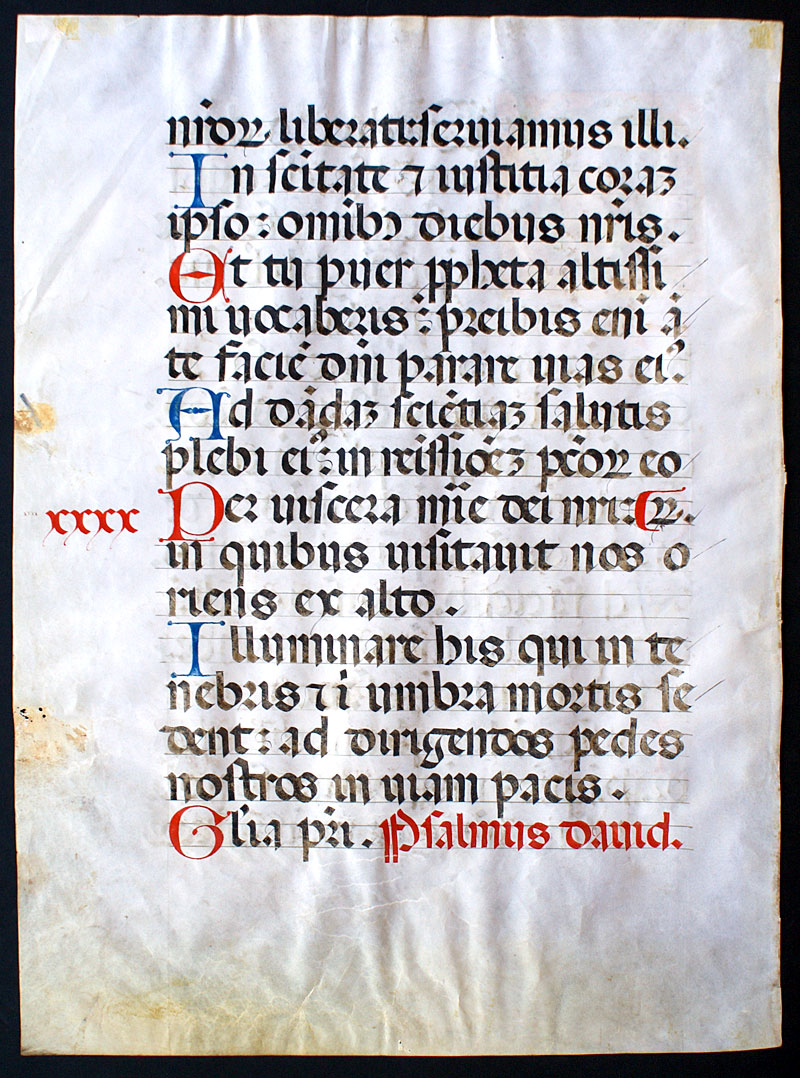 nr̃oꝝ. liberati: seruiamus illi.
In sc̃itate ⁊ iustitia coraꝫ
ipso: omibꝰ diebus nr̃is.
Et tu puer ꝓpheta altissi
mi uocaberis: preibis eni ã
te faciẽ dñi parare uias eiꝰ.
Ad dãdaꝫ sciẽtiaꝫ salutis
plebi eiꝰ: in reissiõeꝫ pc̃oꝝ eo
xxxx
Per uiscera mĩe dei nr̃i: ꝝ.
in quibus uisitauit nos o
riens ex alto.
Illuminare his qui in te
nebris ⁊ ĩ umbra mortis se
dent: ad dirigendos pedes
nostros in uiam pacis.
Gl̃ia pr̃i. Psalmus dauid.